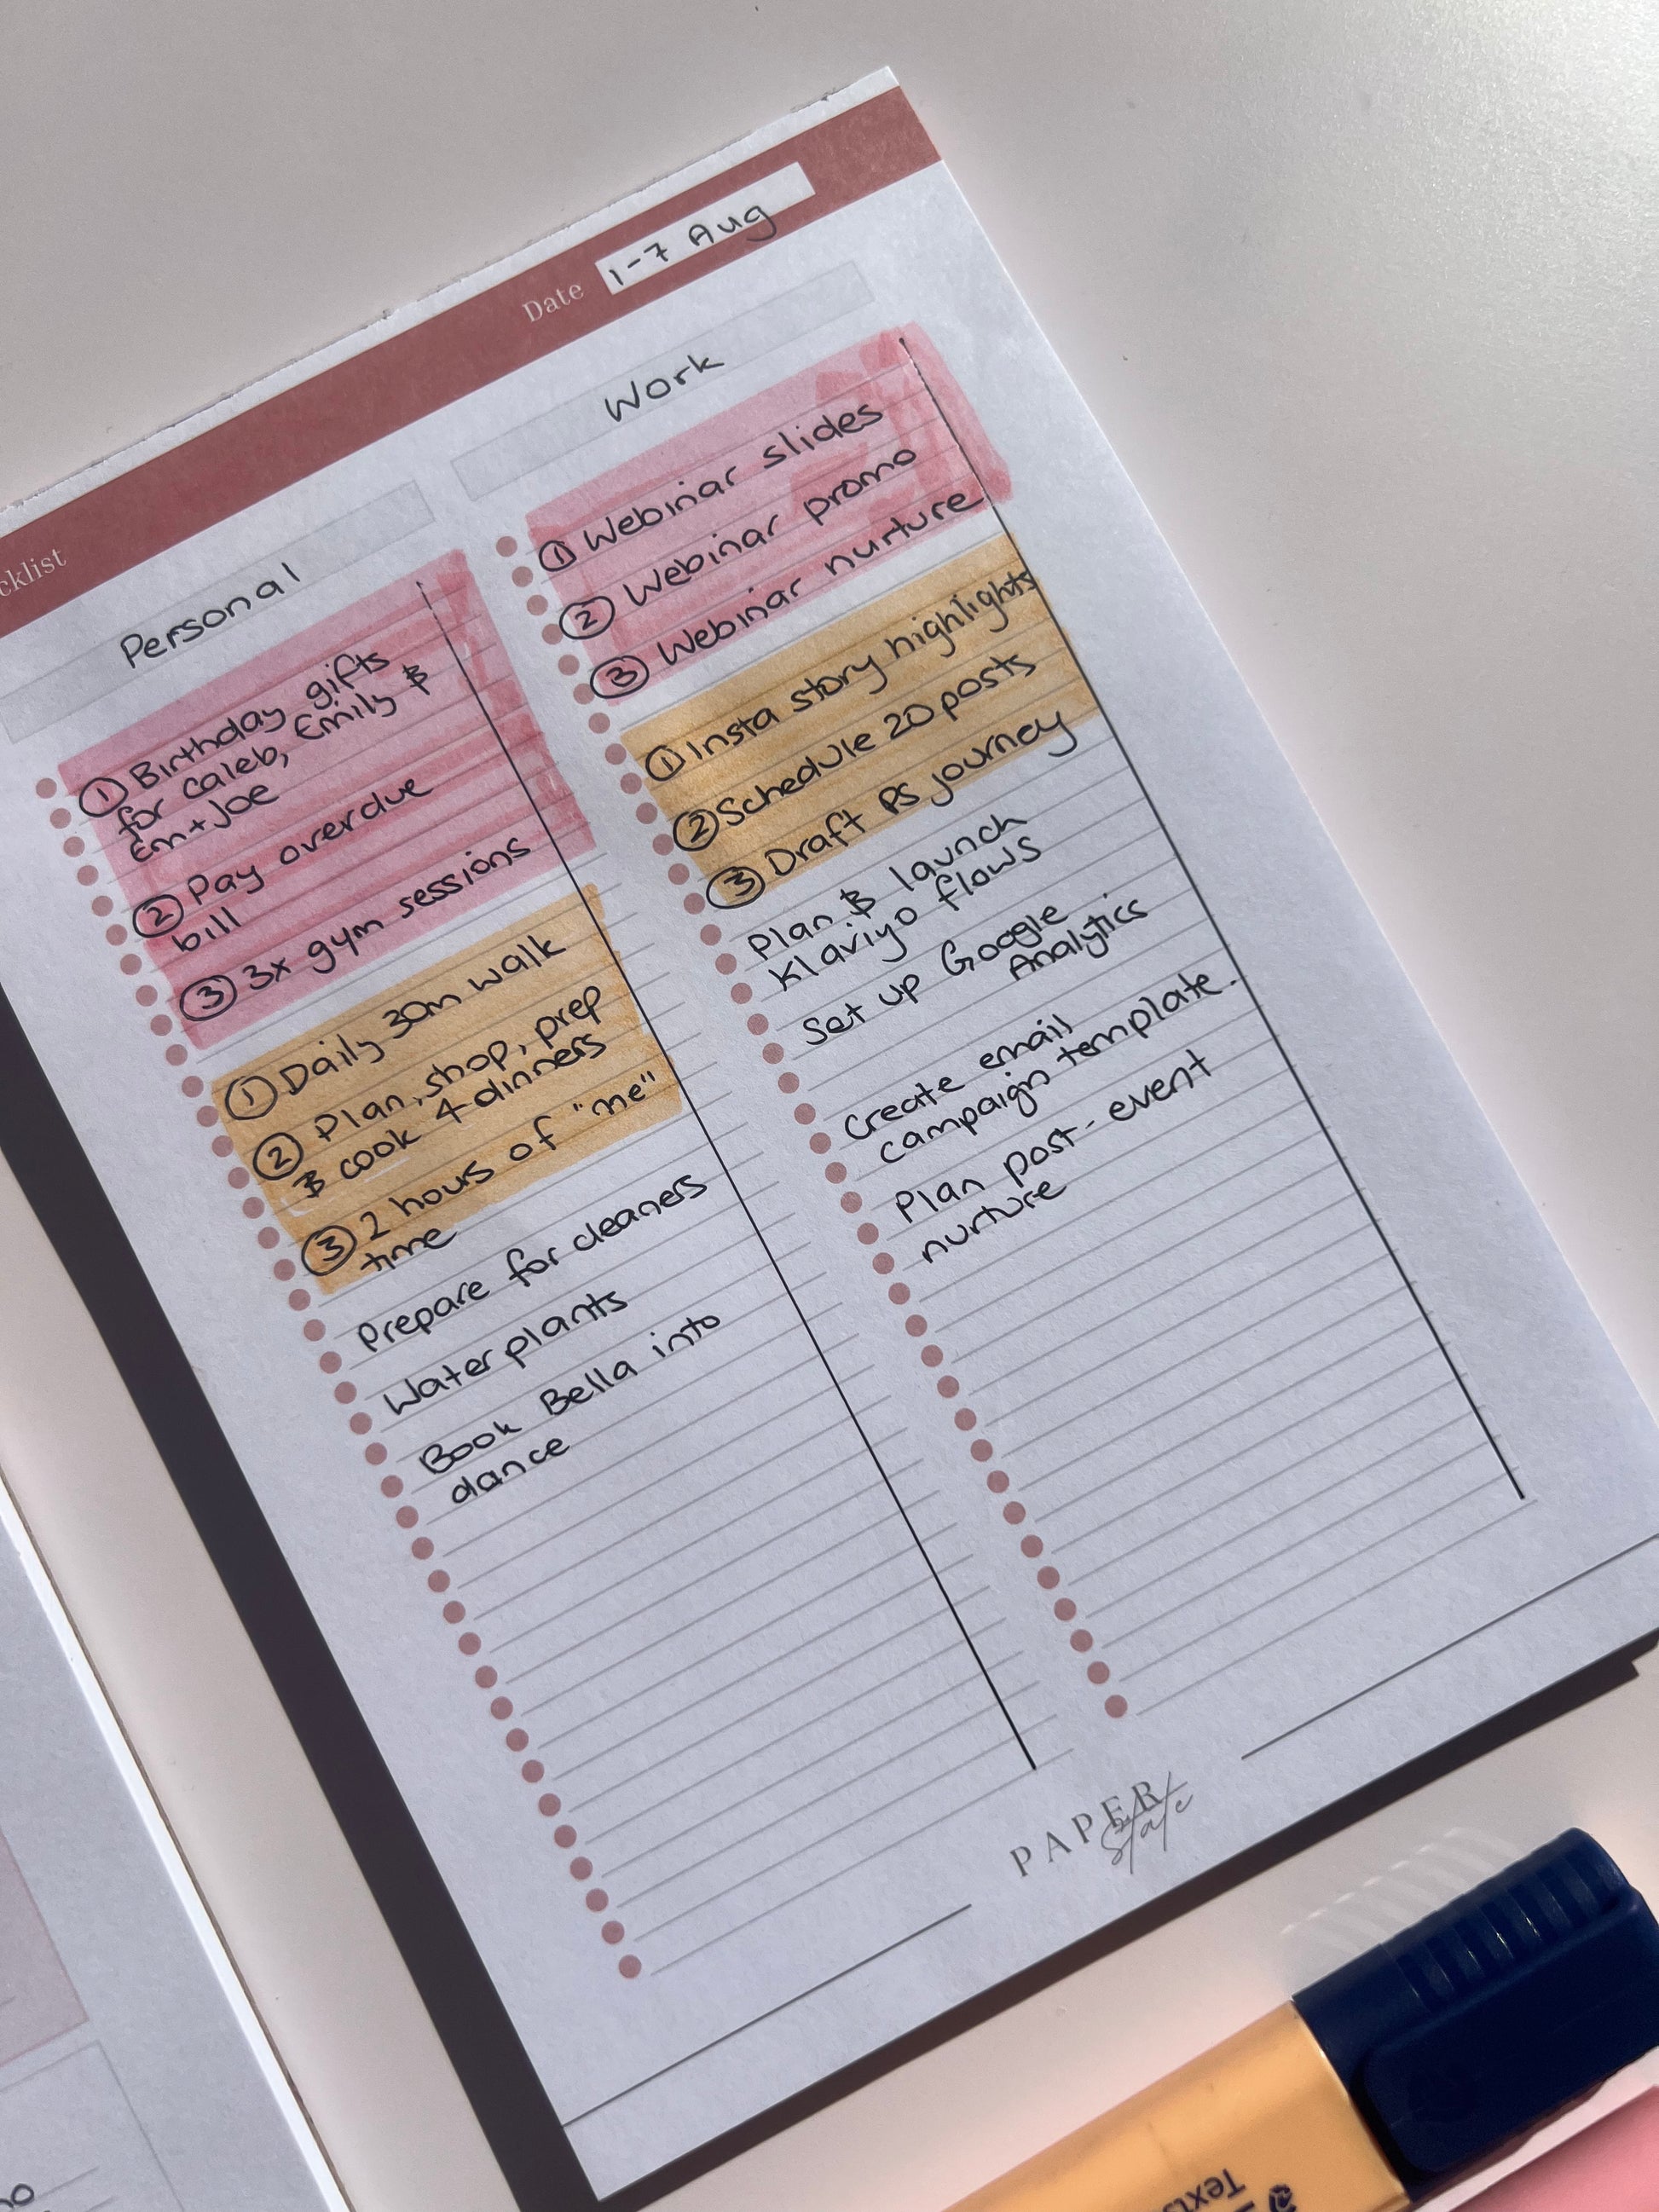 cklist
Date 1-7 Aug
Personal
① Birthday gifts
for Caleb, Emily &
Em+Joe
② Pay overdue
bill
③ 3x gym sessions
① Daily 30m walk
② Plan, shop, prep
& cook 4 dinners
③ 2 hours of "me"
time
Prepare for cleaners
Water plants
Book Bella into
dance
Work
① Webinar slides
② Webinar promo
③ Webinar nurture
① Insta story highlights
② Schedule 20 posts
③ Draft PS journey
Plan & launch
Klaviyo flows
Set up Google
Analytics
Create email
campaign template.
Plan post-event
nurture
PAPER
State